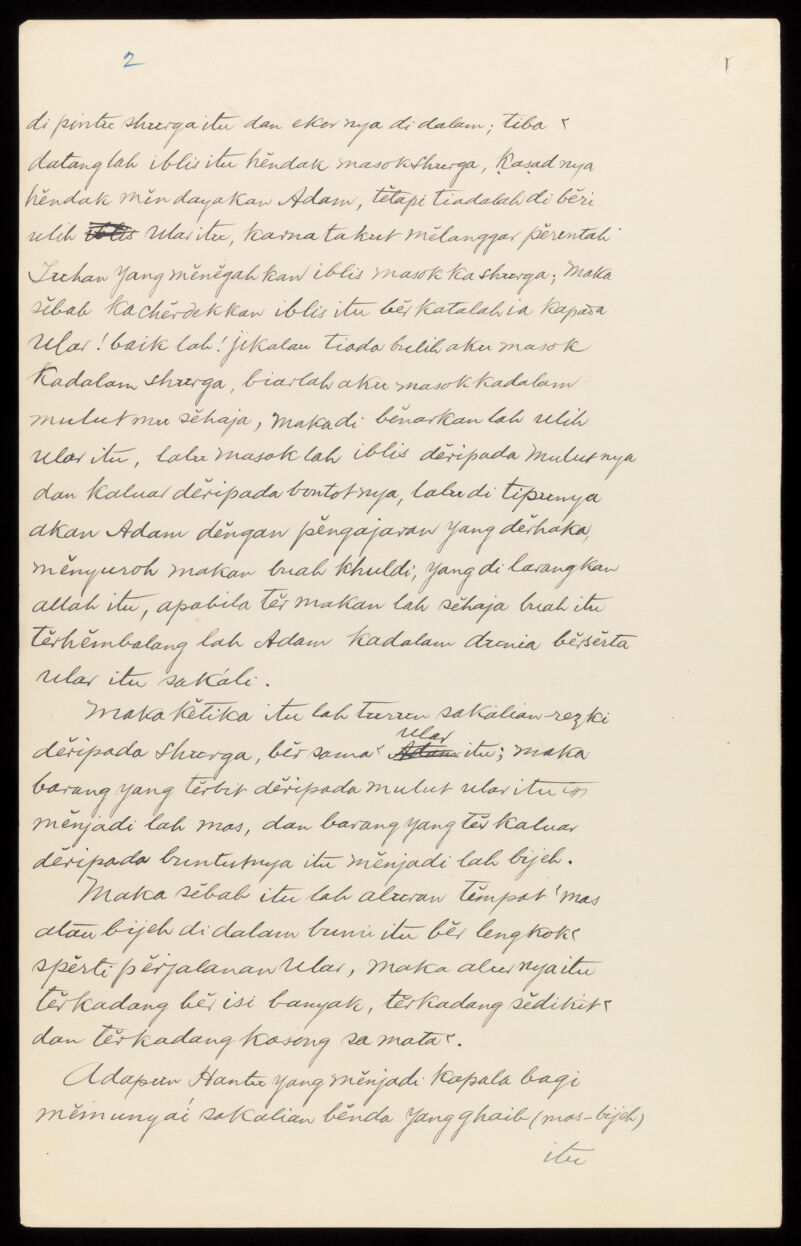 2
di pintu shurga itu dan ekor nya di dalam; tiba ٢
datang lah iblis itu hĕndak masok shurga, Ḳaṣad nya
hĕndak mĭn dayakan Adam, tĕtapi tiadalah di bĕri
ulih iblis Ular itu, karna takut mĕlanggar pĕrentah
Tuhan Yang mĕnĕgah kan iblis masok ka shurga; Maka
sĕbab kachĕrdekkan iblis itu bĕr katalah ia kapada
Ular! baik lah! jikalau tiada bulih aku masok
Kadalam shurga, biarlah aku masok kadalam
mulut mu sĕhaja, maka di bĕnarkan lah ulih
ular itu, lalu masok lah iblis dĕripada mulut nya
dan kaluar dĕripada bontot nya, lalu di tipunya
akan Adam dĕngan pĕngajaran yang dĕrhaka,
mĕnyuroh makan buah khuldi, yang di larang kan
allah itu, apabila tĕr makan lah sĕhaja buah itu
tĕrhĕmbalang lah Adam kadalam dunia bĕrsĕrta
ular itu sakali.
Maka kĕtika itu lah turun sakalian rezki
dĕripada shurga, bĕr sama ٢ Adam Ular itu; maka
barang yang tĕrbit dĕripada mulut ular itu
mĕnjadi lah mas, dan barang yang tĕr kaluar
dĕripada buntutnya itu mĕnjadi lah bijeh.
Maka sĕbab itu lah aluran tĕmpat mas
atau bijeh di dalam bumi itu bĕr lengkok ٢
spĕrti pĕrjalanan Ular, maka alur nya itu
tĕrkadang bĕr isi banyak, tĕrkadang sĕdikit ٢
dan tĕrkadang kosong sa mata ٢.
Adapun Hantu yang mĕnjadi kapala bagi
mĕmunyaï sakalian bĕnda yang ghaib (mas-bijeh)
itu